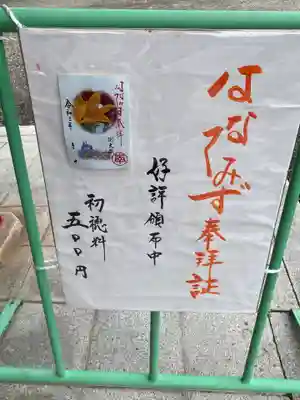 はなてみず奉拝証
好評頒布中
初穂料
五〇〇円
奉拝